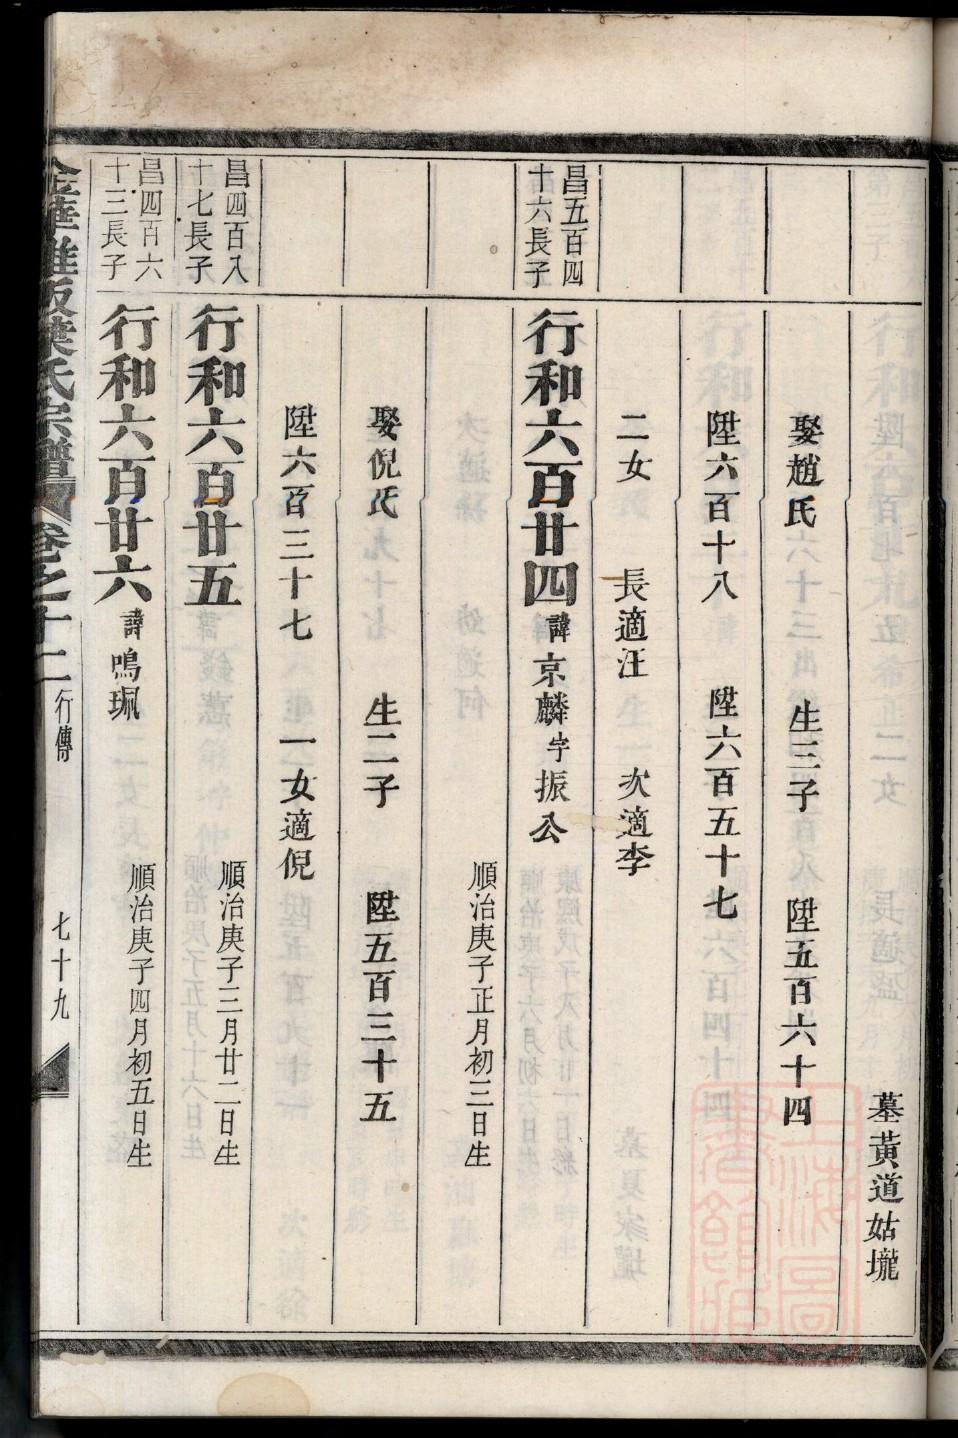 墓黃道姑壠
娶趙氏 生三子 陞五百六十四
陞六百十八 陞六百五十七
二女 長適汪 次適李
昌五百四十六長子
行和六百廿四 諱京麟 字振公
順治庚子正月初三日生
娶倪氏 生二子 陞五百三十五
陞六百三十七 一女適倪
昌四百八十七長子
行和六百廿五
順治庚子三月廿二日生
昌四百六十三長子
行和六百廿六 諱鳴珮
順治庚子四月初五日生
氏宗譜 卷之十二 行傳 七十九
上海圖書館藏